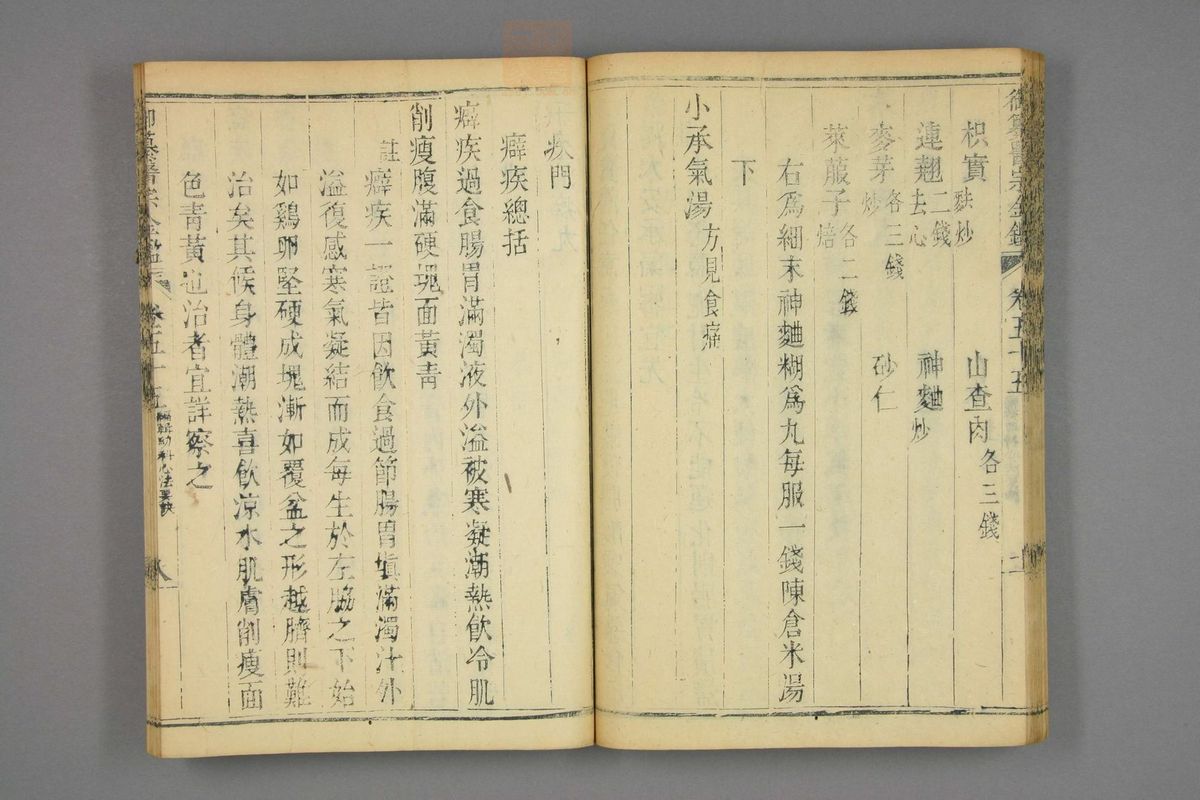 御纂醫宗金鑑 卷五十五
枳實麩炒 山查肉各三錢
連翹二錢去心 神麯炒
麥芽炒各三錢 砂仁
萊菔子焙各二錢
右爲細末神麯糊爲丸每服一錢陳倉米湯
下
小承氣湯方見食癥
疾門
癖疾總括
癖疾過食腸胃滿濁液外溢被寒凝潮熱飲冷肌
削瘦腹滿硬塊面黃青
註癖疾一證皆因飲食過節腸胃塡滿濁汁外
溢復感寒氣凝結而成每生於左脇之下始
如鷄卵堅硬成塊漸如覆盆之形越臍則難
治矣其候身體潮熱喜飲凉水肌膚削瘦面
色青黃也治者宜詳察之
御纂醫宗金鑑 卷五十五 編輯幼科心法要訣 八